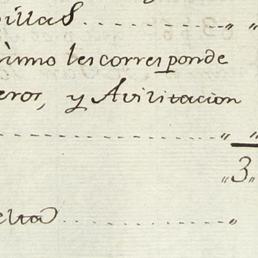 pillas.............. „ „
nimo les corresponde
eros, y Avilitacion
.............. „ „
„3„
elta.............. „